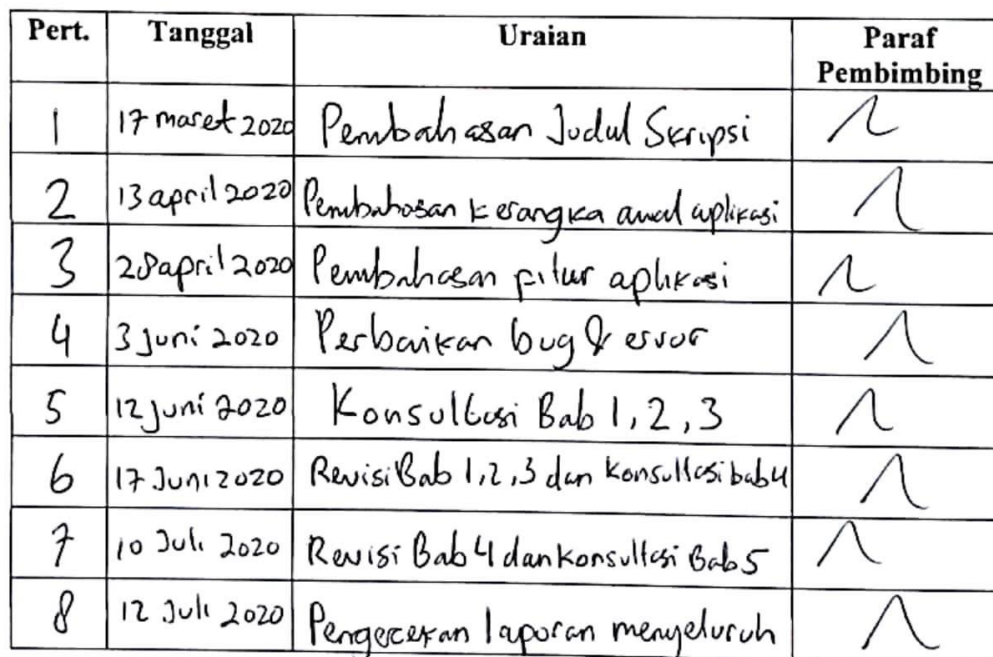 Pert. Tanggal Uraian Paraf Pembimbing
1 17 maret 2020 Pembahasan Judul Skripsi
2 13 april 2020 Pembahasan kerangka awal aplikasi
3 28 april 2020 Pembahasan fitur aplikasi
4 3 Juni 2020 Perbaikan bug & error
5 12 juni 2020 Konsultasi Bab 1, 2, 3
6 17 Juni 2020 Revisi Bab 1, 2, 3 dan konsultasi bab 4
7 10 Juli 2020 Revisi Bab 4 dan konsultasi Bab 5
8 12 Juli 2020 Pengecekan laporan menyeluruh